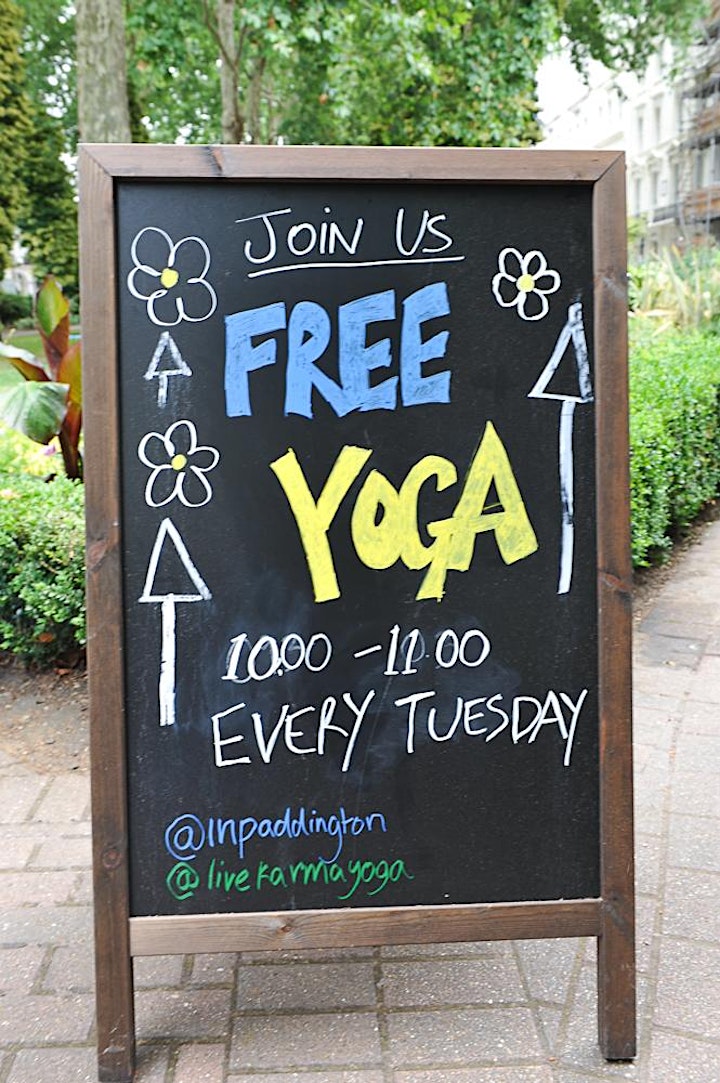 JOIN US
FREE
YOGA
10.00 - 11.00
EVERY TUESDAY
@inpaddington
@livekarmayoga